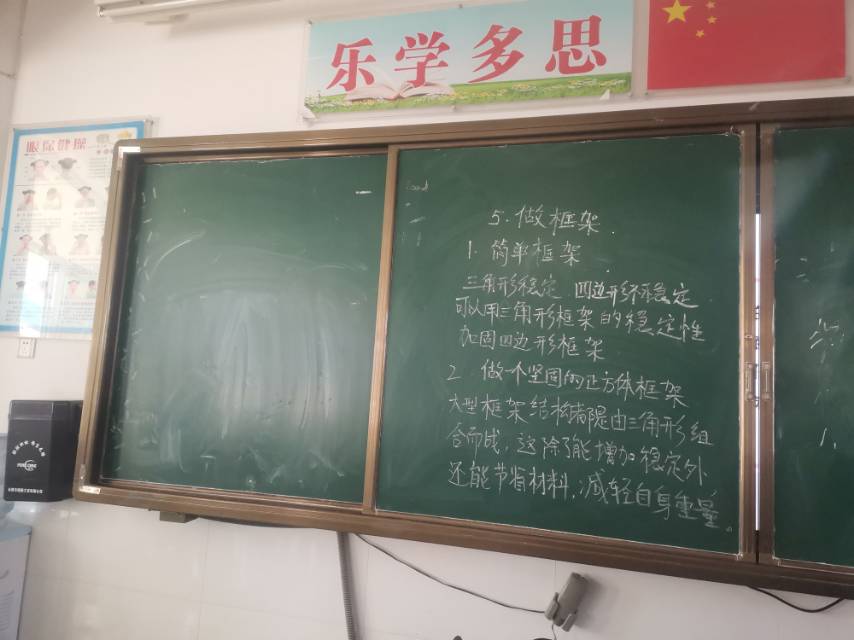 乐学多思
眼保健操
5. 做框架
1. 简单框架
三角形稳定 四边形不稳定
可以用三角形框架的稳定性
加固四边形框架
2 做一个坚固的正方体框架
大型框架结构都是由三角形组
合而成，这除了能增加稳定外
还能节省材料，减轻自身重量。
1.